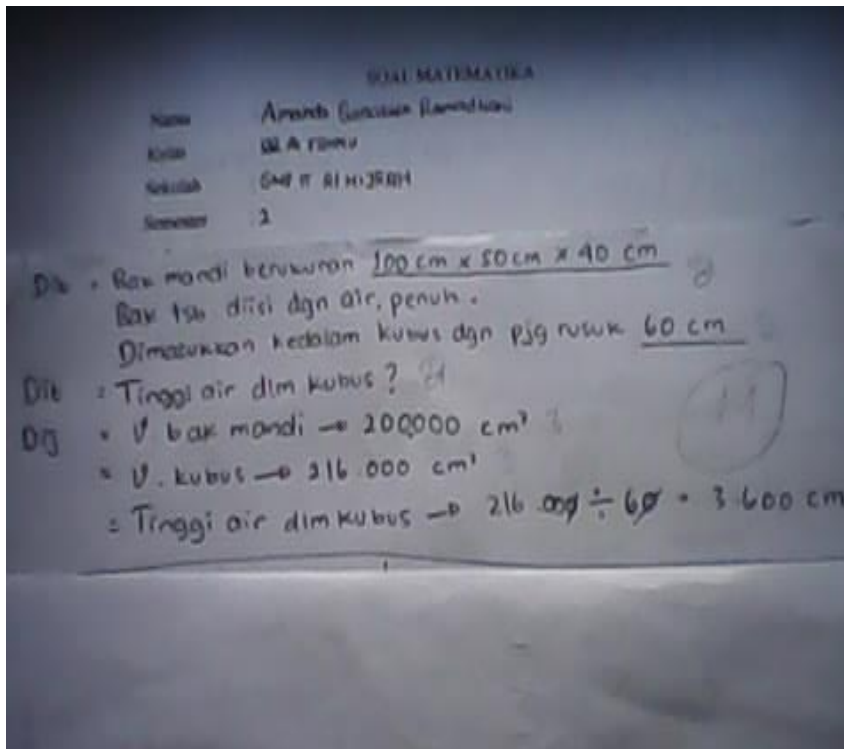 SOAL MATEMATIKA
Nama Amanda Ramadhani
Kelas
Sekolah SMP IT Al HIJRAH
Semester 2
Dik : Bak mandi berukuran 100 cm x 50 cm x 40 cm
Bak tsb diisi dgn air, penuh.
Dimasukkan kedalam kubus dgn pjg rusuk 60 cm
Dit : Tinggi air dlm kubus?
Dij = V bak mandi → 200.000 cm³
= V. kubus → 216.000 cm³
= Tinggi air dlm kubus → 216.000 ÷ 60 = 3.600 cm